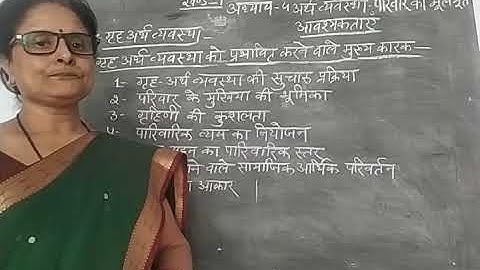 खण्ड-1
अध्याय-५ अर्थ व्यवस्था, परिवार की मूलभूत
आवश्यकताएं
गृह अर्थ व्यवस्था-
गृह अर्थ व्यवस्था को प्रभावित करने वाले मुख्य कारक-
1- गृह-अर्थ व्यवस्था की सुचारू प्रक्रिया
2- परिवार के मुखिया की भूमिका
3- गृहिणी की कुशलता
4- पारिवारिक व्यय का नियोजन
का पारिवारिक स्तर
वाले सामाजिक आर्थिक परिवर्तन
आकार